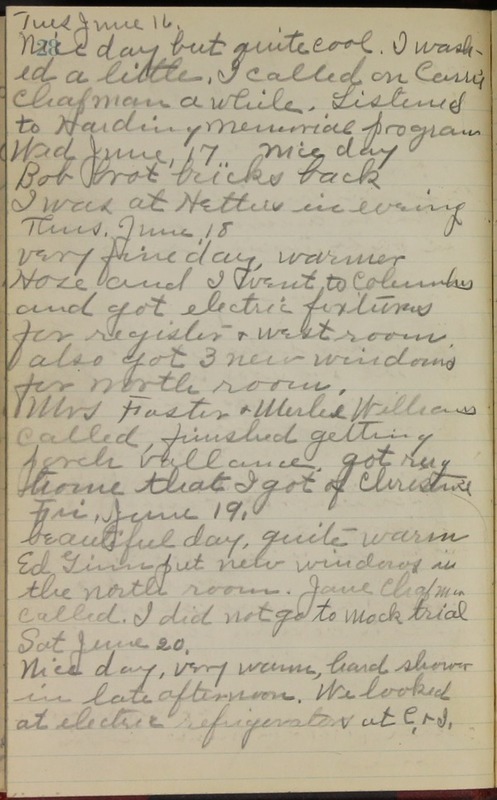 Tues June 16.
28
Nice day but quite cool. I wash-
ed a little. I called on Carrie
Chapman a while. Listened
to Harding memorial program
Wed June, 17 nice day
Bob brot bricks back
I was at Hetties in evening
Thurs, June, 18
very fine day, warmer
Hoze and I went to Columbus
and got electric fixtures
for register & west room.
also got 3 new windows
for north room.
Mrs Foster & Merle Williams
called, finished getting
porch vallance. got rug
home that I got of Christine
Fri, June 19,
beautiful day, quite warm
Ed Ginn put new windows in
the north room. Jane Chapman
called. I did not go to mock trial
Sat June 20.
Nice day, very warm, hard shower
in late afternoon. We looked
at electric refrigerators at C, & S,